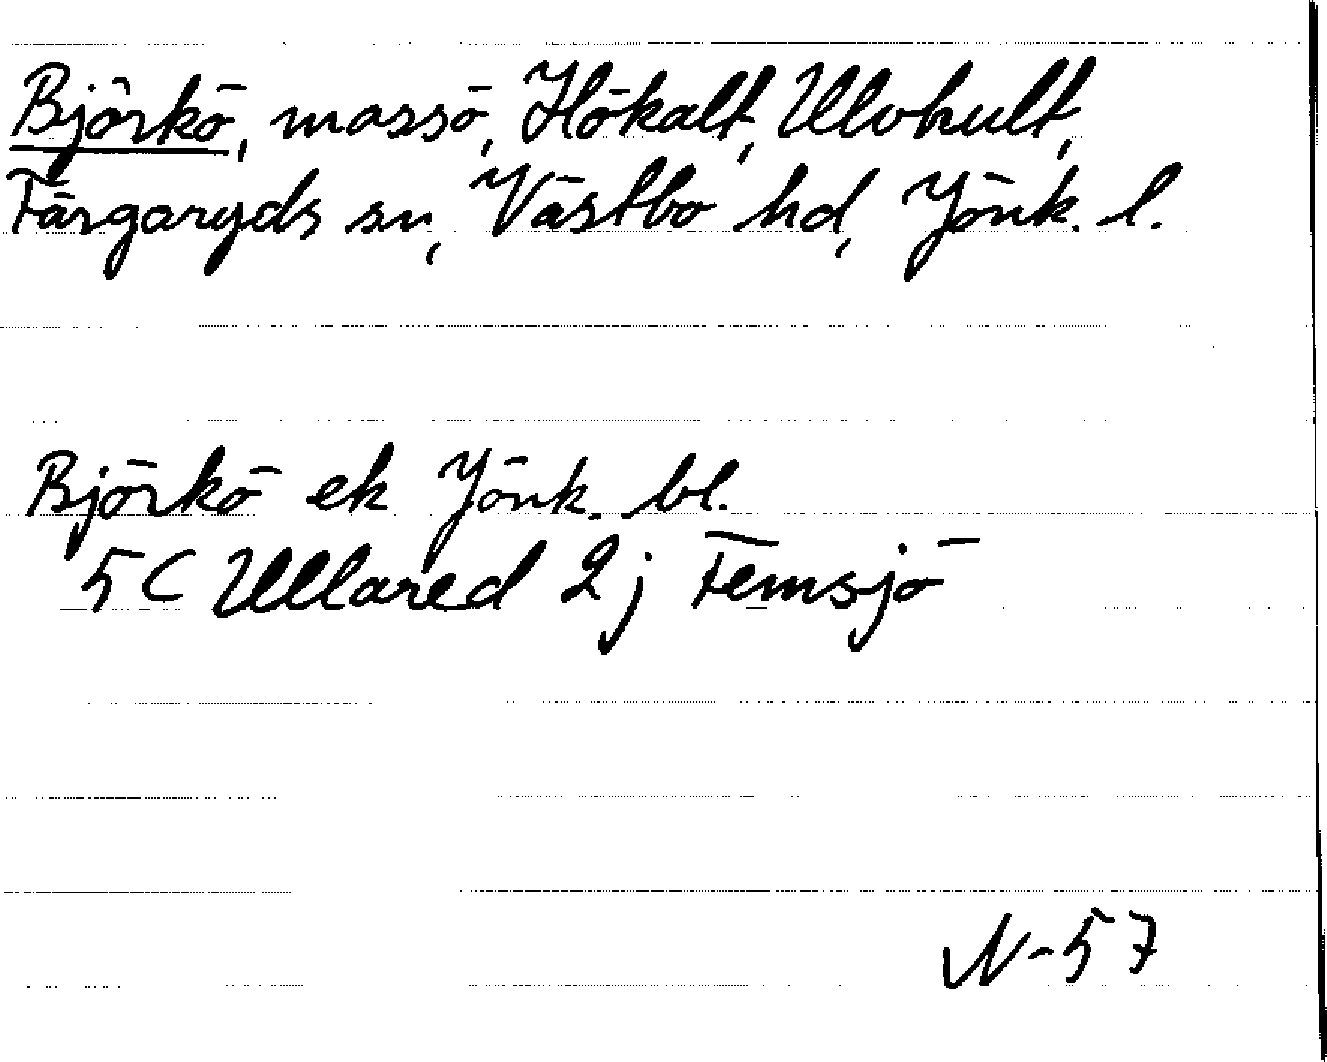 Björkö, mossö, Hökalt, Ulvhult,
Färgaryds sn, Västbo hd, Jönk. l.
Björkö ek Jönk. bl.
5C Ullared 2j Femsjö
N-57